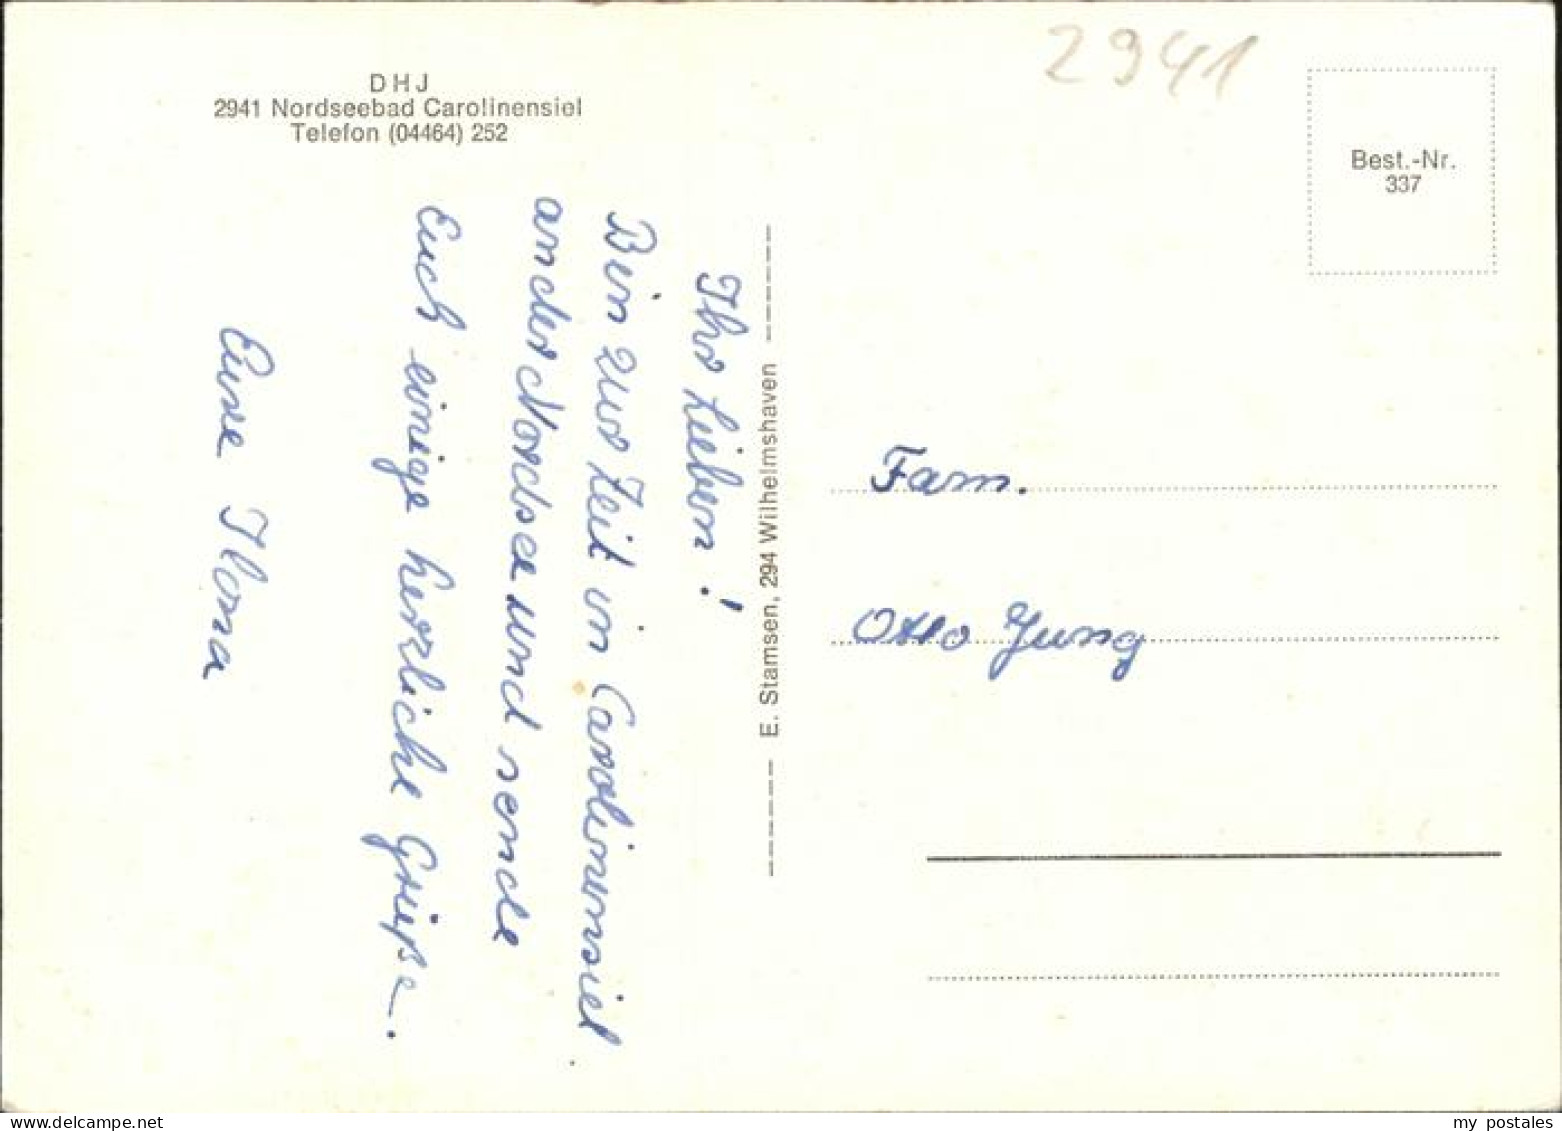 DHJ
2941 Nordseebad Carolinensiel
Telefon (04464) 252
2941
Best.-Nr.
337
Ihr Lieben!
Bin zur Zeit in Carolinensiel
an der Nordsee und sende
Euch einige herzliche Grüße.
Eure Ilona
E. Stamsen, 294 Wilhelmshaven
Fam.
Otto Jung
my postales